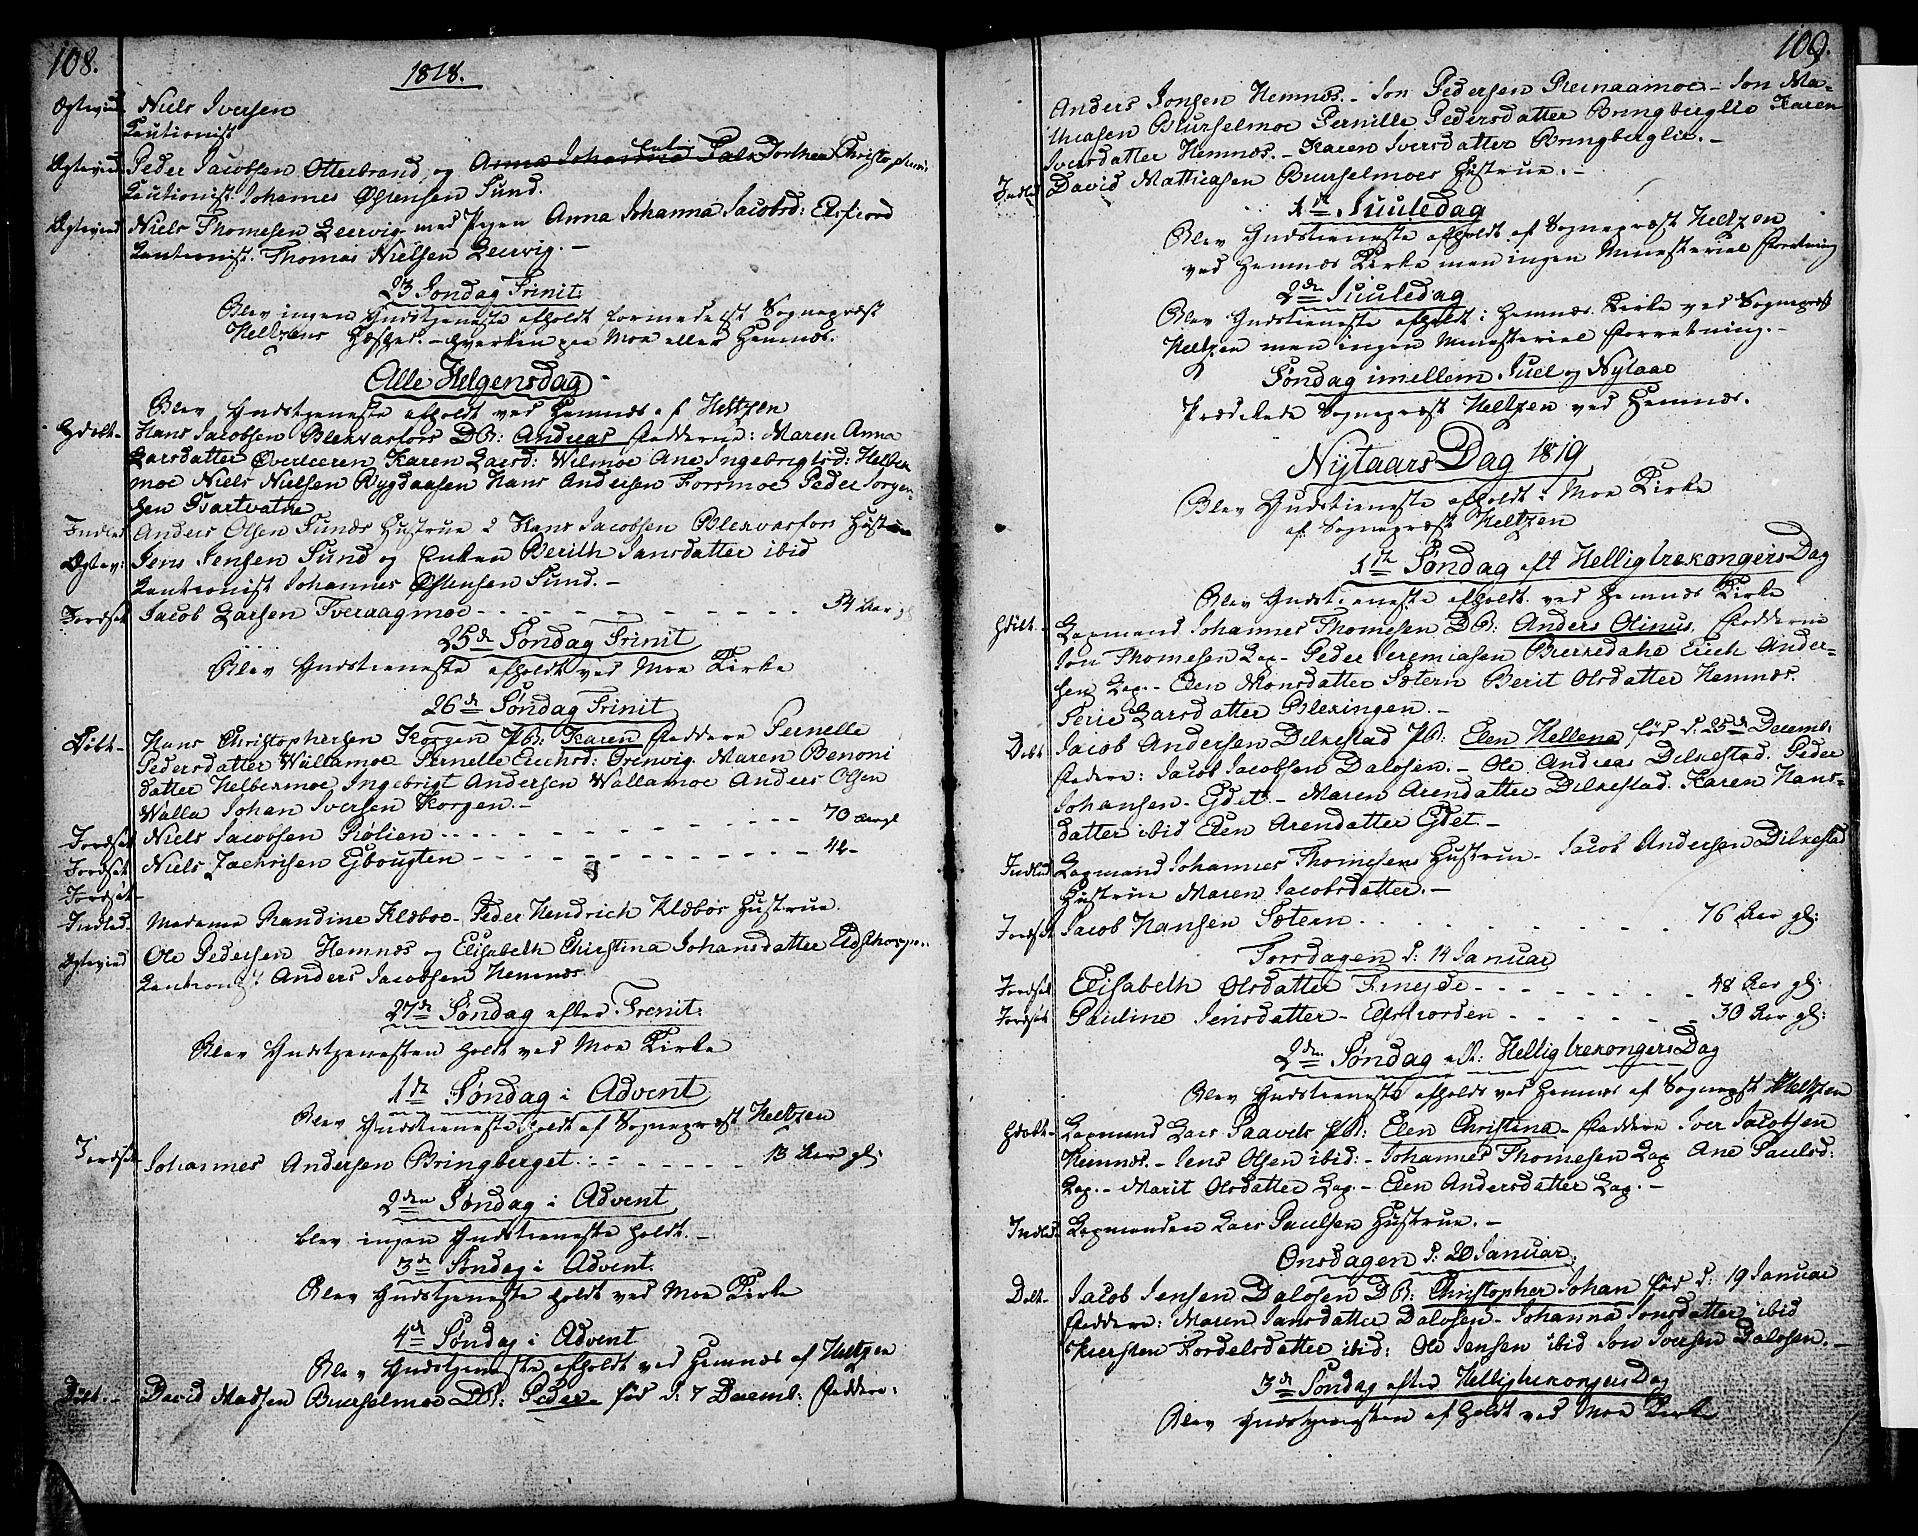 108.
1818.
Ægtevied Niels Iversen
Cautionist
Ægtevied Peder Jacobsen Otterbrand, og Anna Johanna Dorthea Christophersd:
Cautionist Johannes Østensen Sund.
Ægtevied Niels Thomesen Leervig med Pigen Anna Johanna Jacobsd: Elsfiord
Cautionist. Thomas Nielsen Leervig. -
23 Søndag Trinit:
Blev ingen Gudstjeneste afholdt formedelst Sognepræst
Heltzens - hverken paa Moe eller Hemnæs.
Alle Helgensdag
Blev Gudstjeneste afholdt ved Hemnæs af Heltzen
Hans Jacobsen Blekvasfors D B: Andreas Fadderne: Maren Anna
Larsdatter Øverleeren Karen Larsd: Wilmoe Ane Ingebrigtsd: Helber
moe Niels Nielsen Bygdaasen Hans Andersen Forsmoe Peder Jørgen-
sen Svartvatne
Indled Anders Olsen Sunds Hustrue & Hans Jacobsen Blekvasfors Hustrue
Ægtev: Jens Jensen Sund og Enken Berith Jansdatter ibid
Cautionist Johannes Østensen Sund. -
Jordfæst Jacob Larsen Tveraagmoe - - - 54 Aar gl
25de Søndag Trinit
Blev Gudstieneste afholdt ved Moe Kirke
26de Søndag Trinit
Døbt - Hans Christophersen Korgen PB: Karen Faddere Pernelle
Pedersdatter Wallamoe Pernelle Erichsd: Grenvig Maren Benoni
datter Helbermoe Ingebrigt Andersen Wallamoe Anders Olsen
Walla Johan Iversen Korgen. -
Jordfæst Niels Jacobsen Røslien - - - 70 Aar gl
Jordfæst Niels Zachrisen Ejbougten - - - 42 -
Jordfæst -
Indled. Madame Randine Klæboe - Peder Hendrich Klæboes Hustrue.
Ægtevied Ole Pedersen Hemnæs og Elisabeth Christina Johansdatter
Anders Jacobsen Hemnæs.
27de Søndag efter Trenit:
Blev Gudstjenesten holdt ved Moe Kirke
1de Søndag i Advent
Blev Gudstieneste holdt af Sognepræst Heltzen
Jordfæst Johannes Andersen Bringberget - - - 13 Aar gl:
2den Søndag i Advent
blev ingen Gudstieneste holdt. -
3de Søndag i Advent.
Blev Gudstjeneste holdt ved Moe Kirke
4de Søndag i Advent
Blev Gudstjeneste afholdt ved Hemnæs af Heltzen
Døbt. - David Madsen Buerselmoe DB: Peder - fød d: 7 Decemb: Faddere:
109.
Anders Jonsen Hemnæs. - Jon Pedersen Reinaamoe - Jon Ma-
thiasen Buurselmoe Pernille Pedersdatter Bringberglie Karen
Iversdatter Hemnæs. - Karen Iversdatter Bringberglie. -
Indled David Mathiasen Buurselmoes Hustrue. -
1ste Juuledag
Blev Gudstieneste afholdt af Sognepræst Heltzen
ved Hemnæs Kirke men ingen Ministerial Forretning
2den Juuledag
Blev Gudstieneste afholdt i Hemnæs Kirke ved Sognepræst
Heltzen men ingen Ministerial Forretning. -
Søndag imellem Juel og Nytaar
Prædikede Sognepræst Heltzen ved Hemnæs.
Nytaars Dag 1819
Blev Gudstieneste afholdt i Moe Kirke
af Sognepræst Heltzen
1ste Søndag eft Helligtrekongers Dag
Blev Gudstieneste afholdt ved Hemnæs Kirke
Lapmand Johannes Thomesen DB: Anders Olinus, Fadderne
Jon Thomesen Lap - Peder Jeremiasen Bierkedahl Erich Ander-
sen Lap. - Elen Monsdatter Sætern Berit Olsdatter Hemnæs.
Larsdatter Blexingen. -
Døbt Jacob Andersen Dilkestad PB: Elen Hellena fød d. 25de Decemb:
Faddere: Jacob Jacobsen Dalosen. - Ole Andreas Dilkestad. Peder
Johansen - Egdet. - Maren Arendatter Dilkestad. Karen Hans-
datter ibid Elen Arendatter Egdet -
Indled Lapmand Johannes Thomesens Hustrue - Jacob Andersen Dilkestad
Hustrue Maren Jacobsdatter. -
Jordfæst Jacob Hansen Sætern - - - 76 Aar gl:
Torsdagen d: 14 Januar
Jordfæst Elisabeth Olsdatter - - - 48 Aar gl:
Jordfæst Pauline Jensdatter - Elsfiorden - - - 30 Aar gl:
2den Søndag eft: Helligtrekongers Dag
Blev Gudstieneste afholdt ved Hemnæs af Sognepræst Heltzen
Lapmand Lars Paavels PB: Elen Christina - Faddere Iver Jacobsen
Hemnæs. - Jens Olsen ibid: - Johannes Thomesen Lap Ane Paulsd:
Lap. - Marit Olsdatter Lap - Elen Andersdatter Lap. -
Indled: Lapmanden Lars Paulsen Hustrue. -
Onsdagen d: 20 Januar
Døbt - Jacob Jensen Dalosen DB: Christopher Johan fød d: 19 Januar
Faddere: Maren Jansdatter Dalosen - Johanna Jonsdatter ibid
Kiersten Tordelsdatter ibid: Ole Jensen ibid Jon Iversen Dalosen. -
3de Søndag efter Helligtrekongers Dag
Blev Gudstjenesten afholdt ved Moe Kirke